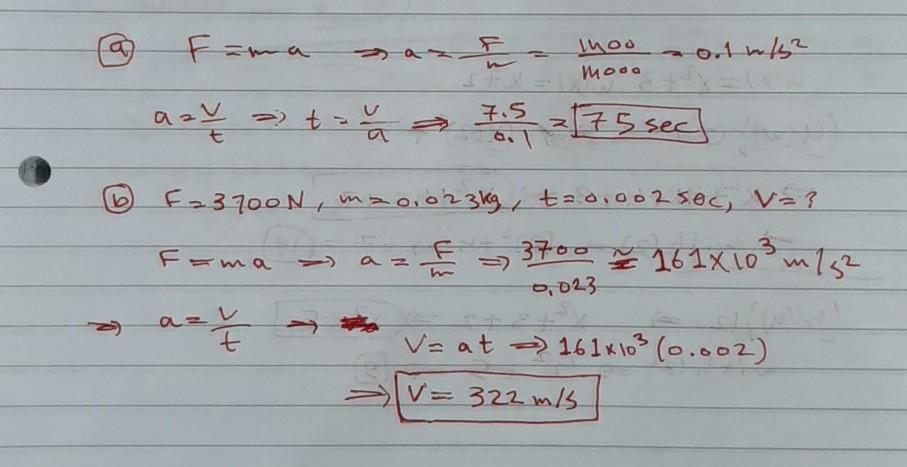 ⓐ F = ma ⇒ a = F/m = 1100/11000 = 0.1 m/s²
a = V/t ⇒ t = V/a ⇒ 7.5/0.1 = 75 sec
ⓑ F = 3700N, m = 0.023kg, t = 0.002 sec, V = ?
F = ma → a = F/m ⇒ 3700/0.023 ≈ 161×10³ m/s²
⇒ a = V/t →
V = at ⇒ 161×10³ (0.002)
⇒ V = 322 m/s